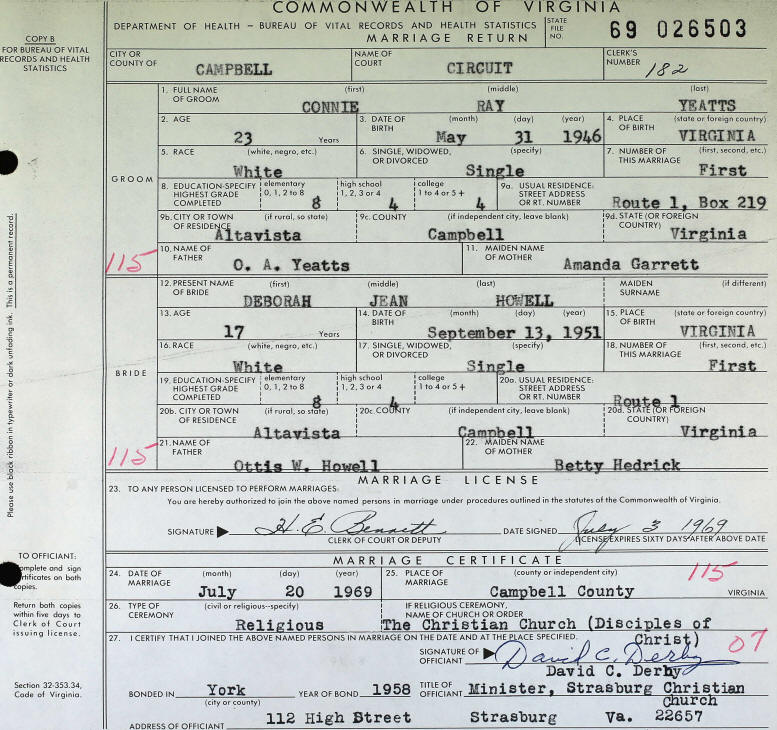 COMMONWEALTH OF VIRGINIA
DEPARTMENT OF HEALTH – BUREAU OF VITAL RECORDS AND HEALTH STATISTICS
MARRIAGE RETURN
STATE FILE NO. 69 026503
COPY B
FOR BUREAU OF VITAL
RECORDS AND HEALTH
STATISTICS
CITY OR COUNTY OF CAMPBELL NAME OF COURT CIRCUIT CLERK'S NUMBER 182
GROOM
1. FULL NAME OF GROOM (first) CONNIE (middle) RAY (last) YEATTS
2. AGE 23 Years 3. DATE OF BIRTH (month) May (day) 31 (year) 1946 4. PLACE OF BIRTH (state or foreign country) VIRGINIA
5. RACE (white, negro, etc.) White 6. SINGLE, WIDOWED, OR DIVORCED (specify) Single 7. NUMBER OF THIS MARRIAGE (first, second, etc.) First
8. EDUCATION-SPECIFY HIGHEST GRADE COMPLETED elementary 0, 1, 2 to 8 8 high school 1, 2, 3 or 4 4 college 1 to 4 or 5 + 4 9a. USUAL RESIDENCE: STREET ADDRESS OR RT. NUMBER Route 1, Box 219
9b. CITY OR TOWN OF RESIDENCE (if rural, so state) Altavista 9c. COUNTY (if independent city, leave blank) Campbell 9d. STATE (OR FOREIGN COUNTRY) Virginia
115 10. NAME OF FATHER O. A. Yeatts 11. MAIDEN NAME OF MOTHER Amanda Garrett
BRIDE
12. PRESENT NAME OF BRIDE (first) DEBORAH (middle) JEAN (last) HOWELL MAIDEN SURNAME (if different)
13. AGE 17 Years 14. DATE OF BIRTH (month) (day) (year) September 13, 1951 15. PLACE OF BIRTH (state or foreign country) VIRGINIA
16. RACE (white, negro, etc.) White 17. SINGLE, WIDOWED, OR DIVORCED (specify) Single 18. NUMBER OF THIS MARRIAGE (first, second, etc.) First
19. EDUCATION-SPECIFY HIGHEST GRADE COMPLETED elementary 0, 1, 2 to 8 8 high school 1, 2, 3 or 4 4 college 1 to 4 or 5 + 20a. USUAL RESIDENCE: STREET ADDRESS OR RT. NUMBER Route 1
20b. CITY OR TOWN OF RESIDENCE (if rural, so state) Altavista 20c. COUNTY (if independent city, leave blank) Campbell 20d. STATE (OR FOREIGN COUNTRY) Virginia
115 21. NAME OF FATHER Ottis W. Howell 22. MAIDEN NAME OF MOTHER Betty Hedrick
MARRIAGE LICENSE
23. TO ANY PERSON LICENSED TO PERFORM MARRIAGES:
You are hereby authorized to join the above named persons in marriage under procedures outlined in the statutes of the Commonwealth of Virginia.
SIGNATURE H. E. Bennett DATE SIGNED July 3 1969
CLERK OF COURT OR DEPUTY LICENSE EXPIRES SIXTY DAYS AFTER ABOVE DATE
MARRIAGE CERTIFICATE
24. DATE OF MARRIAGE (month) July (day) 20 (year) 1969 25. PLACE OF MARRIAGE (county or independent city) Campbell County 115 VIRGINIA
26. TYPE OF CEREMONY (civil or religious--specify) Religious IF RELIGIOUS CEREMONY, NAME OF CHURCH OR ORDER The Christian Church (Disciples of Christ)
27. I CERTIFY THAT I JOINED THE ABOVE NAMED PERSONS IN MARRIAGE ON THE DATE AND AT THE PLACE SPECIFIED. 07
SIGNATURE OF OFFICIANT David C. Derby
David C. Derby
BONDED IN York (city or county) YEAR OF BOND 1958 TITLE OF OFFICIANT Minister, Strasburg Christian Church
ADDRESS OF OFFICIANT 112 High Street Strasburg Va. 22657
Please use black ribbon in typewriter or dark unfading ink. This is a permanent record.
TO OFFICIANT:
mplete and sign
rtificates on both
copies.
Return both copies
within five days to
Clerk of Court
issuing license.
Section 32-353.34,
Code of Virginia.